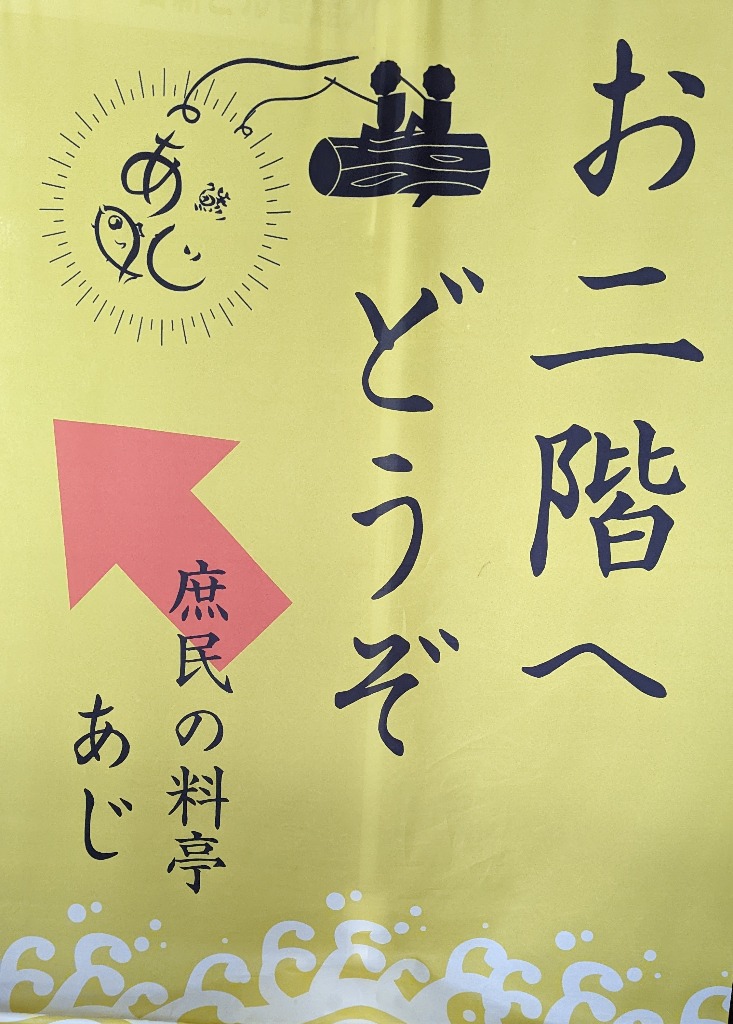 お二階へ
どうぞ
庶民の料亭
あじ
あじ